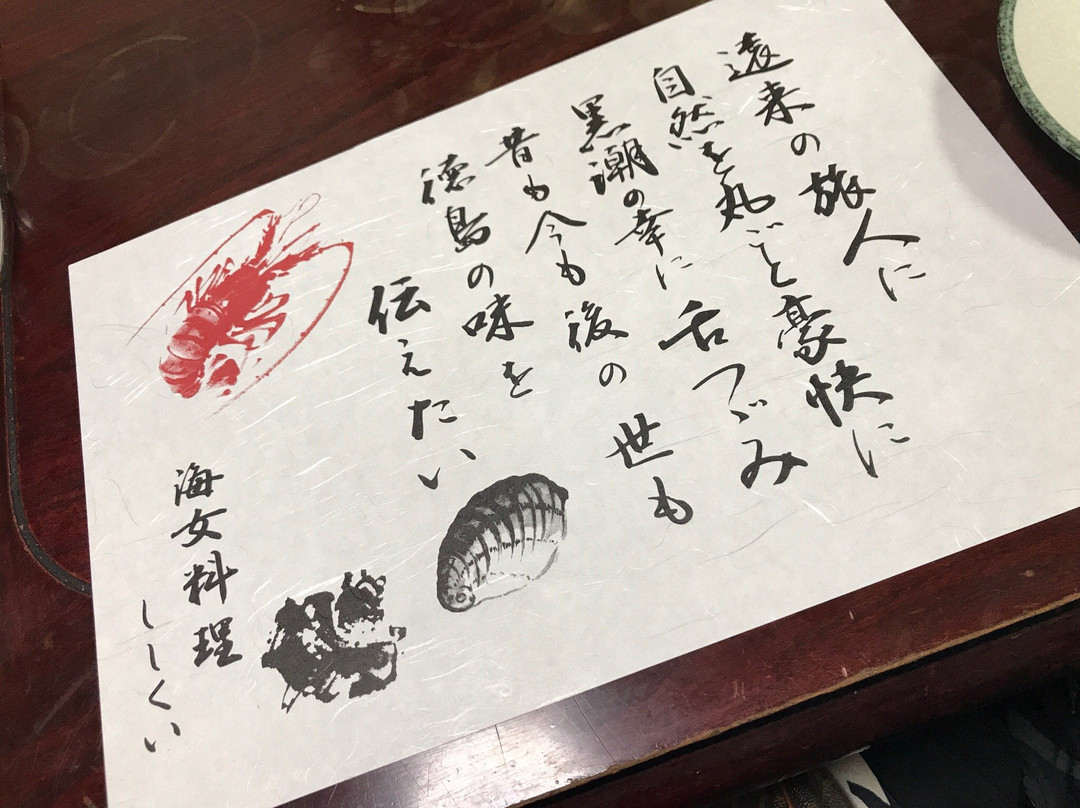 遠来の旅人に
自然を丸ごと豪快に
黒潮の幸に舌つゞみ
昔も今も後の世も
徳島の味を
伝えたい
海女料理
ししくい